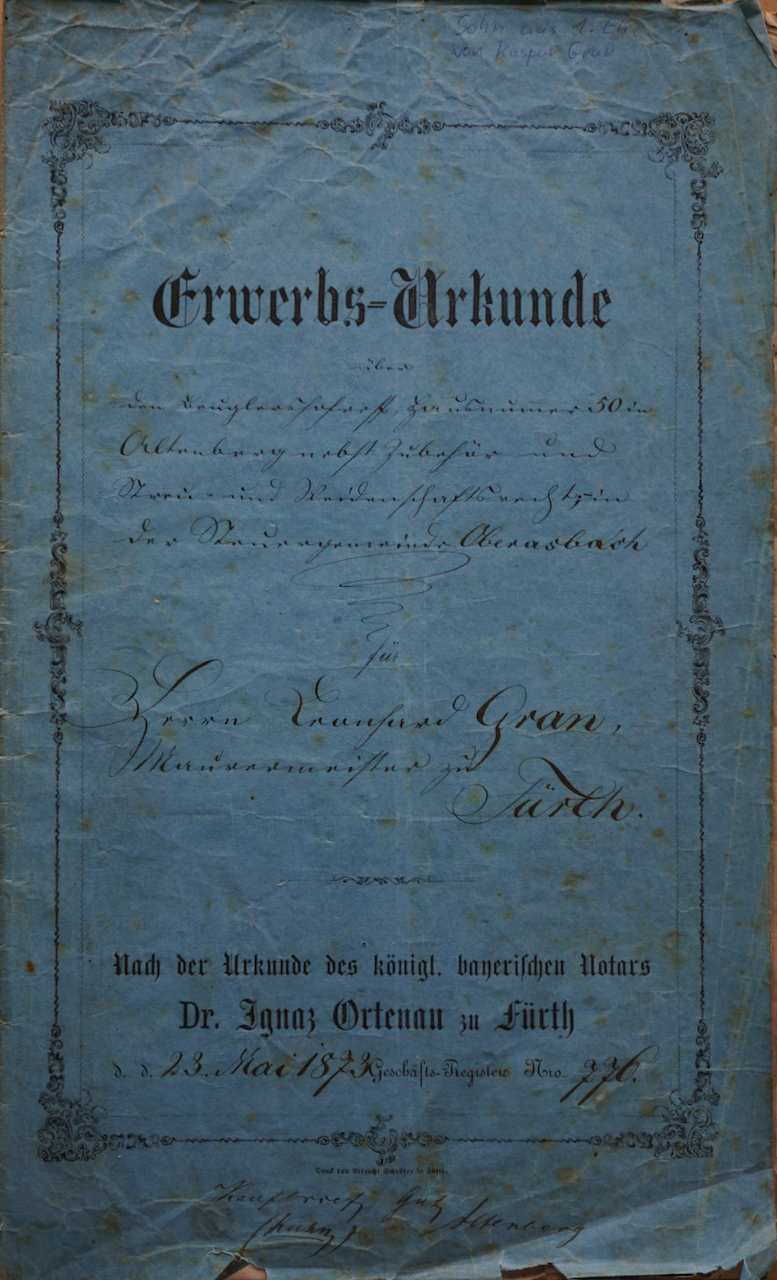 Sohn aus 1. Ehe
von Kaspar Gran
Erwerbs-Urkunde
über
den Hausnummer 50 in
Altenberg nebst Zubehör und
Streu- und Weidenschaftsrecht, in
der Steuergemeinde Oberasbach
für
Herrn Leonhard Gran,
Maurermeister zu
Fürth.
Nach der Urkunde des königl. bayerischen Notars
Dr. Ignaz Ortenau zu Fürth
d. d. 23. Mai 1873 Geschäfts-Register Nro. 776.
Druck von Albrecht Schröder in Fürth.
Gut Altenberg